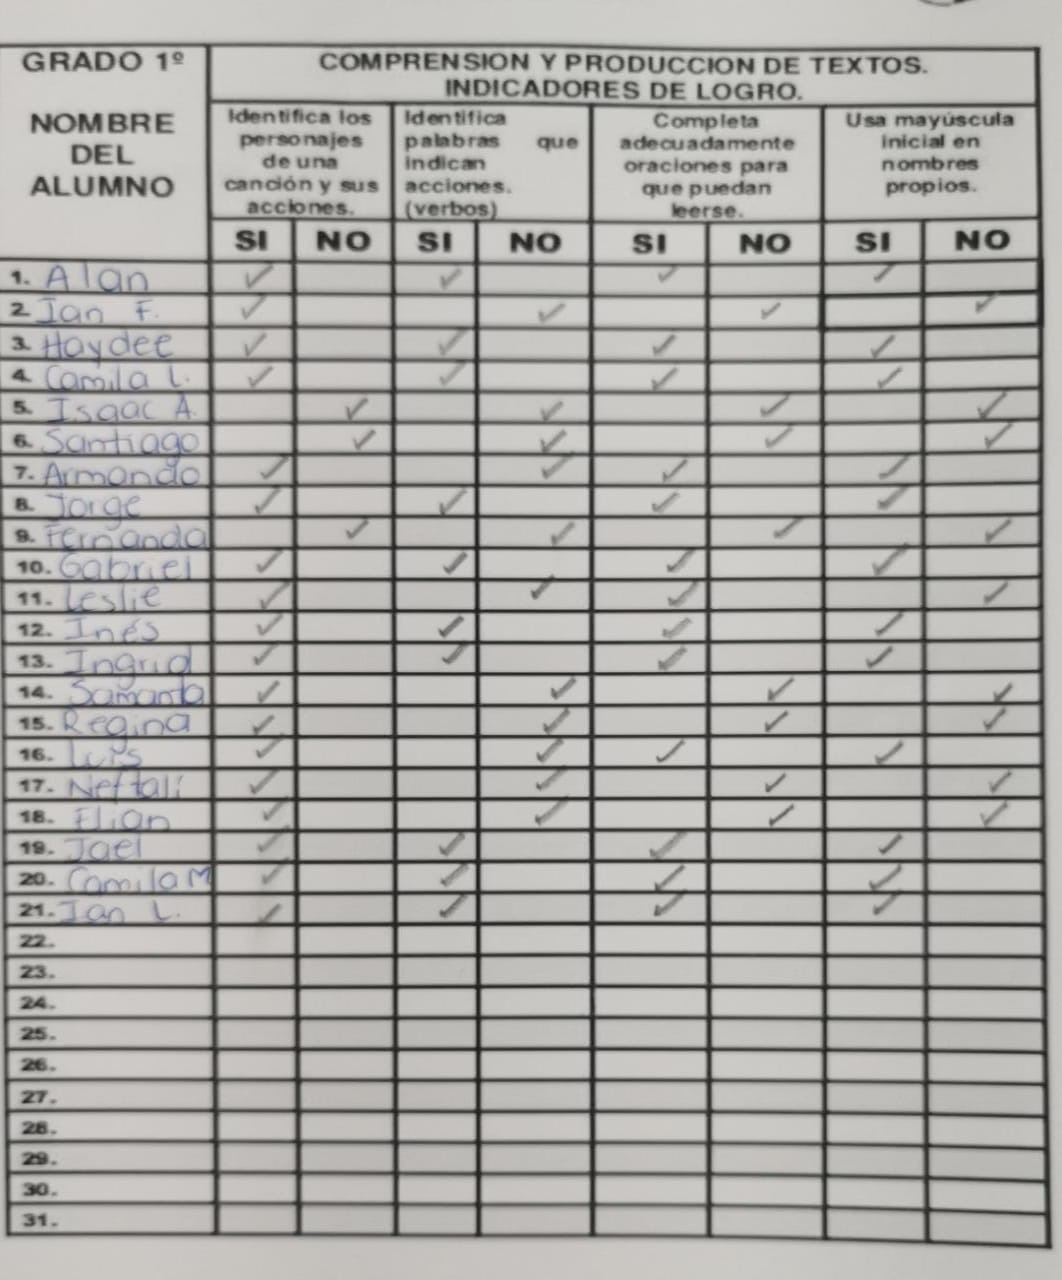 GRADO 1º
NOMBRE
DEL
ALUMNO
COMPRENSION Y PRODUCCION DE TEXTOS.
INDICADORES DE LOGRO.
Identifica los
personajes
de una
canción y sus
acciones.
Identifica
palabras que
indican
acciones.
(verbos)
Completa
adecuadamente
oraciones para
que puedan
leerse.
Usa mayúscula
inicial en
nombres
propios.
SI NO SI NO SI NO SI NO
1. Alan ✓ ✓ ✓ ✓
2. Ian F. ✓ ✓ ✓ ✓
3. Haydee ✓ ✓ ✓ ✓
4. Camila L. ✓ ✓ ✓ ✓
5. Isaac A. ✓ ✓ ✓ ✓
6. Santiago ✓ ✓ ✓ ✓
7. Armando ✓ ✓ ✓ ✓
8. Jorge ✓ ✓ ✓ ✓
9. Fernanda ✓ ✓ ✓ ✓
10. Gabriel ✓ ✓ ✓ ✓
11. Leslie ✓ ✓ ✓ ✓
12. Inés ✓ ✓ ✓ ✓
13. Ingrid ✓ ✓ ✓ ✓
14. Samanta ✓ ✓ ✓ ✓
15. Regina ✓ ✓ ✓ ✓
16. Luis ✓ ✓ ✓ ✓
17. Neftali ✓ ✓ ✓ ✓
18. Elian ✓ ✓ ✓ ✓
19. Jael ✓ ✓ ✓ ✓
20. Camila M ✓ ✓ ✓ ✓
21. Ian L. ✓ ✓ ✓ ✓
22.
23.
24.
25.
26.
27.
28.
29.
30.
31.